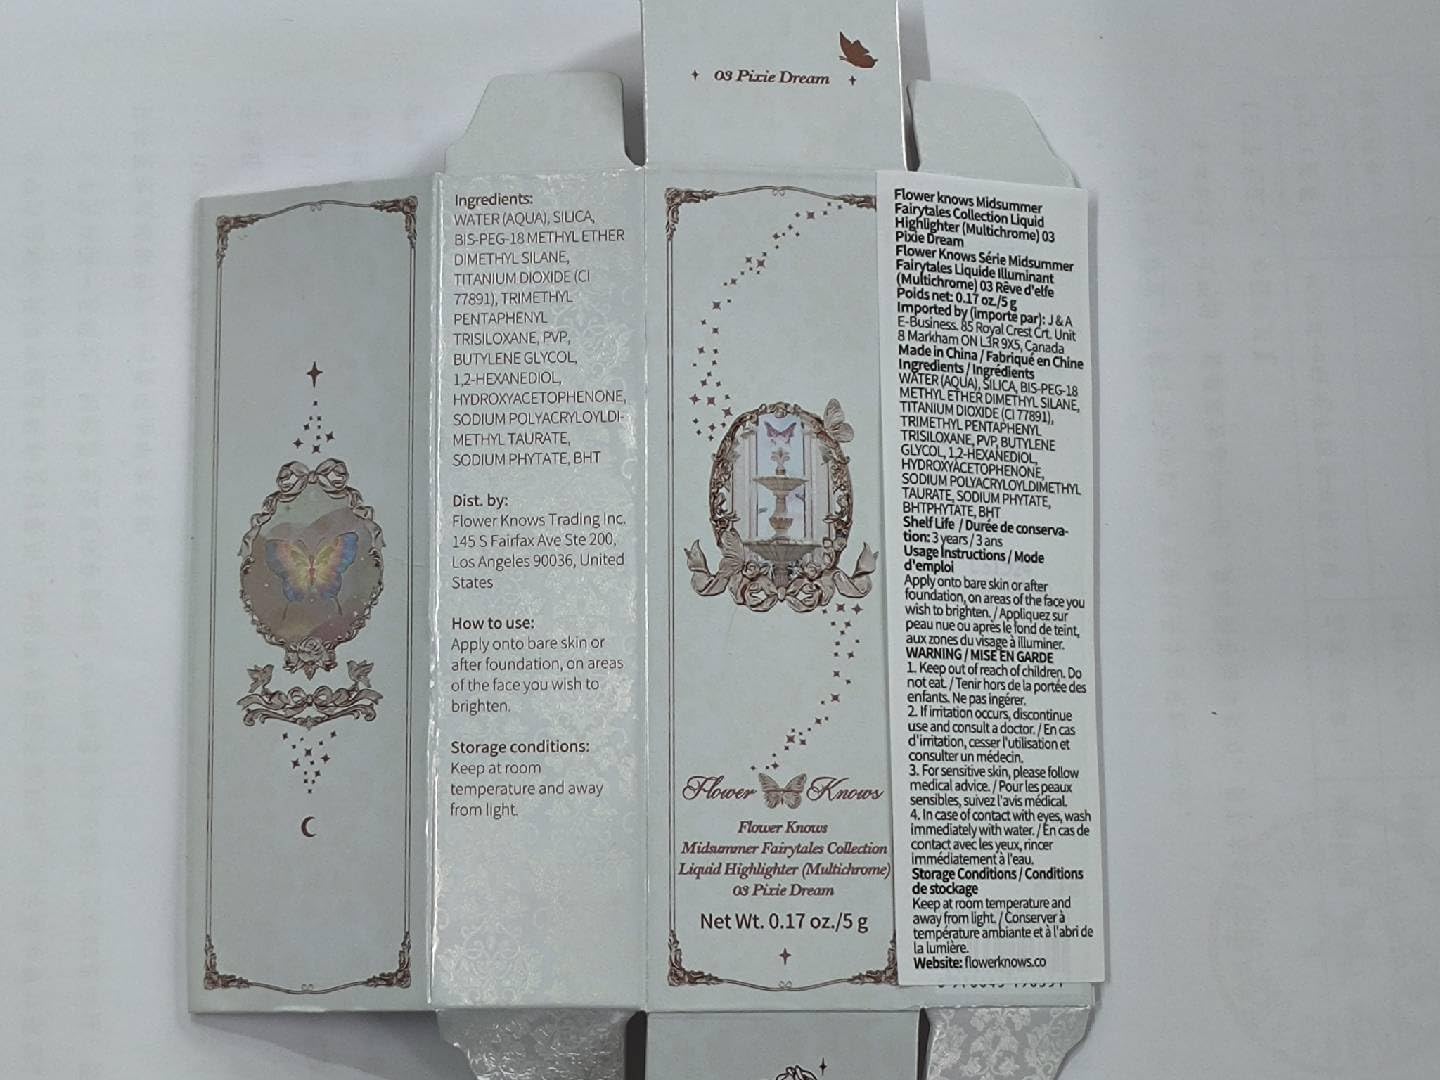 03 Pixie Dream
Ingredients:
WATER (AQUA), SILICA,
BIS-PEG-18 METHYL ETHER
DIMETHYL SILANE,
TITANIUM DIOXIDE (CI
77891), TRIMETHYL
PENTAPHENYL
TRISILOXANE, PVP,
BUTYLENE GLYCOL,
1,2-HEXANEDIOL,
HYDROXYACETOPHENONE,
SODIUM POLYACRYLOYLDI-
METHYL TAURATE,
SODIUM PHYTATE, BHT
Dist. by:
Flower Knows Trading Inc.
145 S Fairfax Ave Ste 200,
Los Angeles 90036, United
States
How to use:
Apply onto bare skin or
after foundation, on areas
of the face you wish to
brighten.
Storage conditions:
Keep at room
temperature and away
from light.
Flower Knows
Flower Knows
Midsummer Fairytales Collection
Liquid Highlighter (Multichrome)
03 Pixie Dream
Net Wt. 0.17 oz./5 g
Flower knows Midsummer
Fairytales Collection Liquid
Highlighter (Multichrome) 03
Pixie Dream
Flower Knows Série Midsummer
Fairytales Liquide Illuminant
(Multichrome) 03 Rêve d'elfe
Poids net: 0.17 oz./5 g
Imported by (importé par): J & A
E-Business. 85 Royal Crest Crt. Unit
8 Markham ON L3R 9X5, Canada
Made in China / Fabriqué en Chine
Ingredients / Ingrédients
WATER (AQUA), SILICA, BIS-PEG-18
METHYL ETHER DIMETHYL SILANE,
TITANIUM DIOXIDE (CI 77891),
TRIMETHYL PENTAPHENYL
TRISILOXANE, PVP, BUTYLENE
GLYCOL, 1,2-HEXANEDIOL,
HYDROXYACETOPHENONE,
SODIUM POLYACRYLOYLDIMETHYL
TAURATE, SODIUM PHYTATE,
BHTPHYTATE, BHT
Shelf Life / Durée de conserva-
tion: 3 years / 3 ans
Usage Instructions / Mode
d'emploi
Apply onto bare skin or after
foundation, on areas of the face you
wish to brighten. / Appliquez sur
peau nue ou après le fond de teint,
aux zones du visage à illuminer.
WARNING / MISE EN GARDE
1. Keep out of reach of children. Do
not eat. / Tenir hors de la portée des
enfants. Ne pas ingérer.
2. If irritation occurs, discontinue
use and consult a doctor. / En cas
d'irritation, cesser l'utilisation et
consulter un médecin.
3. For sensitive skin, please follow
medical advice. / Pour les peaux
sensibles, suivez l'avis médical.
4. In case of contact with eyes, wash
immediately with water. / En cas de
contact avec les yeux, rincer
immédiatement à l'eau.
Storage Conditions / Conditions
de stockage
Keep at room temperature and
away from light. / Conserver à
température ambiante et à l'abri de
la lumière.
Website: flowerknows.co